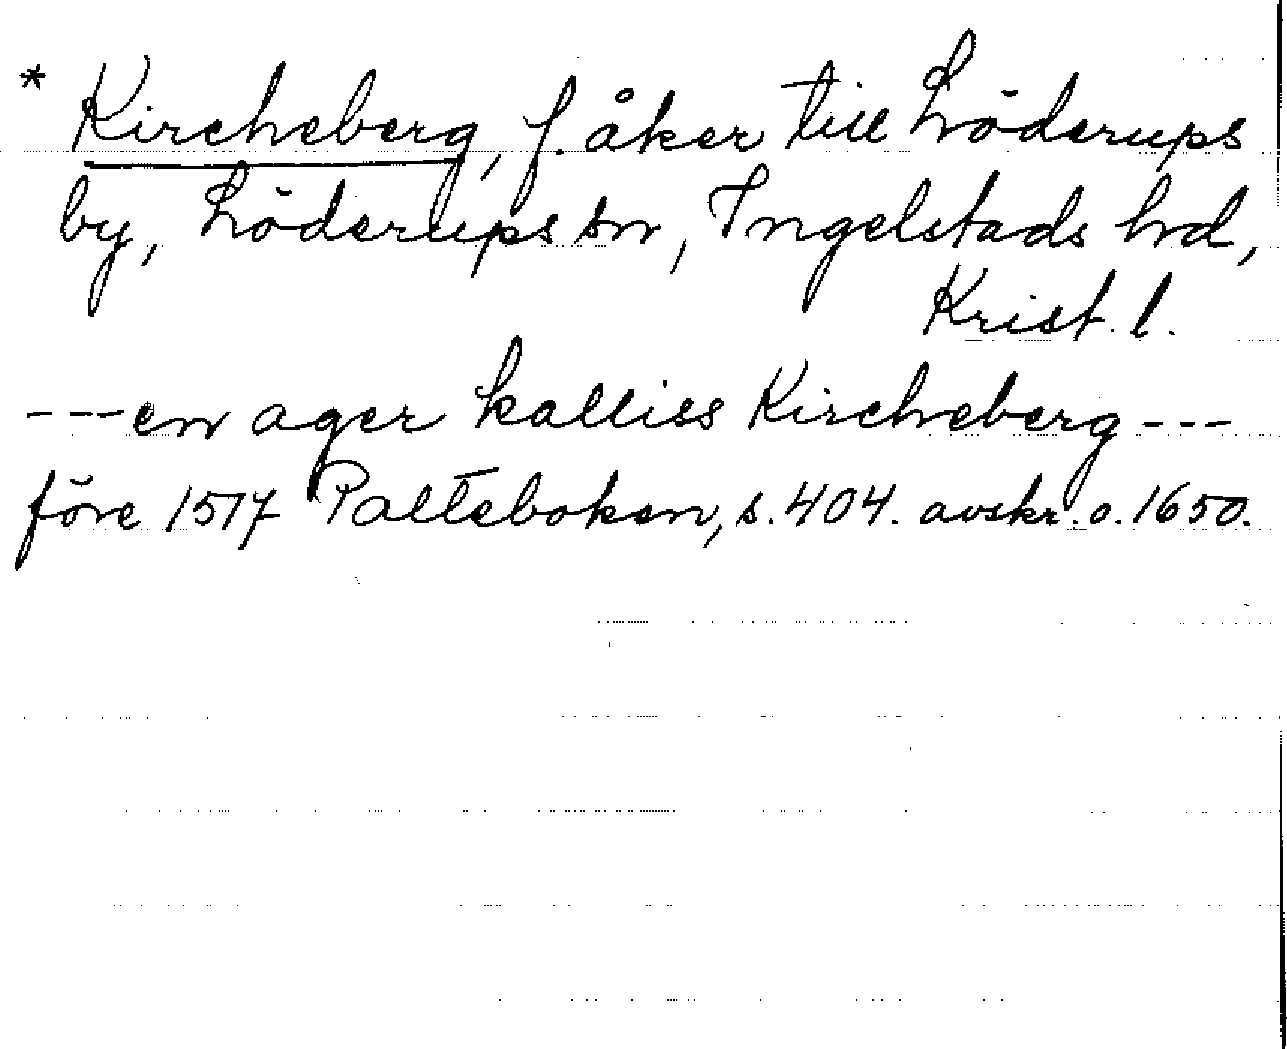 * Kircheberg, f. åker till Löderups
by, Löderups sn, Ingelstads hd,
Krist. l.
---en ager kalliss Kircheberg---
före 1517 Palteboken, s. 404. avskr. o. 1650.